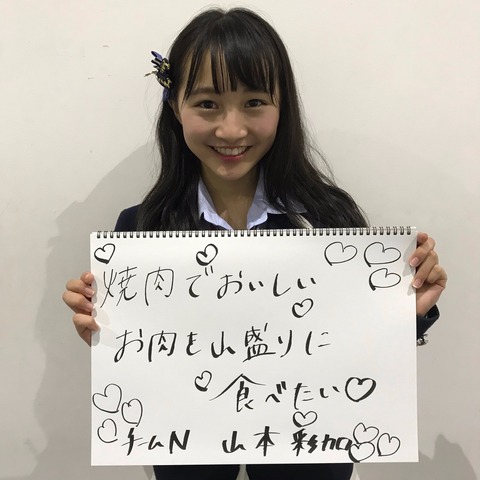 焼肉でおいしい
お肉を山盛りに
食べたい♡
チームN 山本彩加